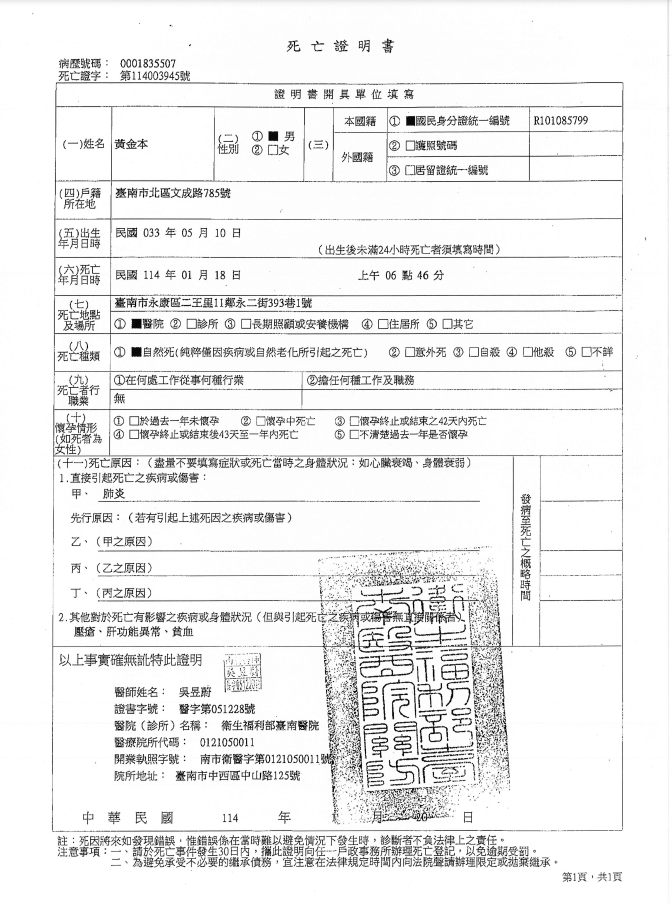 死亡證明書
病歷號碼： 0001835507
死亡證字： 第114003945號
證明書開具單位填寫
(一)姓名 黃金本 (二)性別 ①■男 ②□女 (三) 本國籍 ①■國民身分證統一編號 R101085799
外國籍 ②□護照號碼
③□居留證統一編號
(四)戶籍所在地 臺南市北區文成路785號
(五)出生年月日時 民國 033 年 05 月 10 日
(出生後未滿24小時死亡者須填寫時間)
(六)死亡年月日時 民國 114 年 01 月 18 日 上午 06 點 46 分
(七)死亡地點及場所 臺南市永康區二王里11鄰永二街393巷1號
①■醫院 ②□診所 ③□長期照顧或安養機構 ④□住居所 ⑤□其它
(八)死亡種類 ①■自然死(純粹僅因疾病或自然老化所引起之死亡) ②□意外死 ③□自殺 ④□他殺 ⑤□不詳
(九)死亡者行職業 ①在何處工作從事何種行業 ②擔任何種工作及職務
無
(十)懷孕情形(如死者為女性) ①□於過去一年未懷孕 ②□懷孕中死亡 ③□懷孕終止或結束之42天內死亡
④□懷孕終止或結束後43天至一年內死亡 ⑤□不清楚過去一年是否懷孕
(十一)死亡原因：(盡量不要填寫症狀或死亡當時之身體狀況：如心臟衰竭、身體衰弱)
1.直接引起死亡之疾病或傷害：
甲、 肺炎
發病至死亡之概略時間
先行原因：(若有引起上述死因之疾病或傷害)
乙、(甲之原因)
丙、(乙之原因)
丁、(丙之原因)
2.其他對於死亡有影響之疾病或身體狀況(但與引起死亡之疾病或傷害無直接關係者)
壓瘡、肝功能異常、貧血
以上事實確無訛特此證明
醫師姓名： 吳昱蔚
證書字號： 醫字第051228號
醫院（診所）名稱： 衛生福利部臺南醫院
醫療院所代碼： 0121050011
開業執照字號： 南市衛醫字第0121050011號
院所地址： 臺南市中西區中山路125號
中華民國 114 年 月 20 日
註：死因將來如發現錯誤，惟錯誤係在當時難以避免情況下發生時，診斷者不負法律上之責任。
注意事項：一、請於死亡事件發生30日內，攜此證明向任一戶政事務所辦理死亡登記，以免逾期受罰。
二、為避免承受不必要的繼承債務，宜注意在法律規定時間內向法院聲請辦理限定或拋棄繼承。
第1頁，共1頁